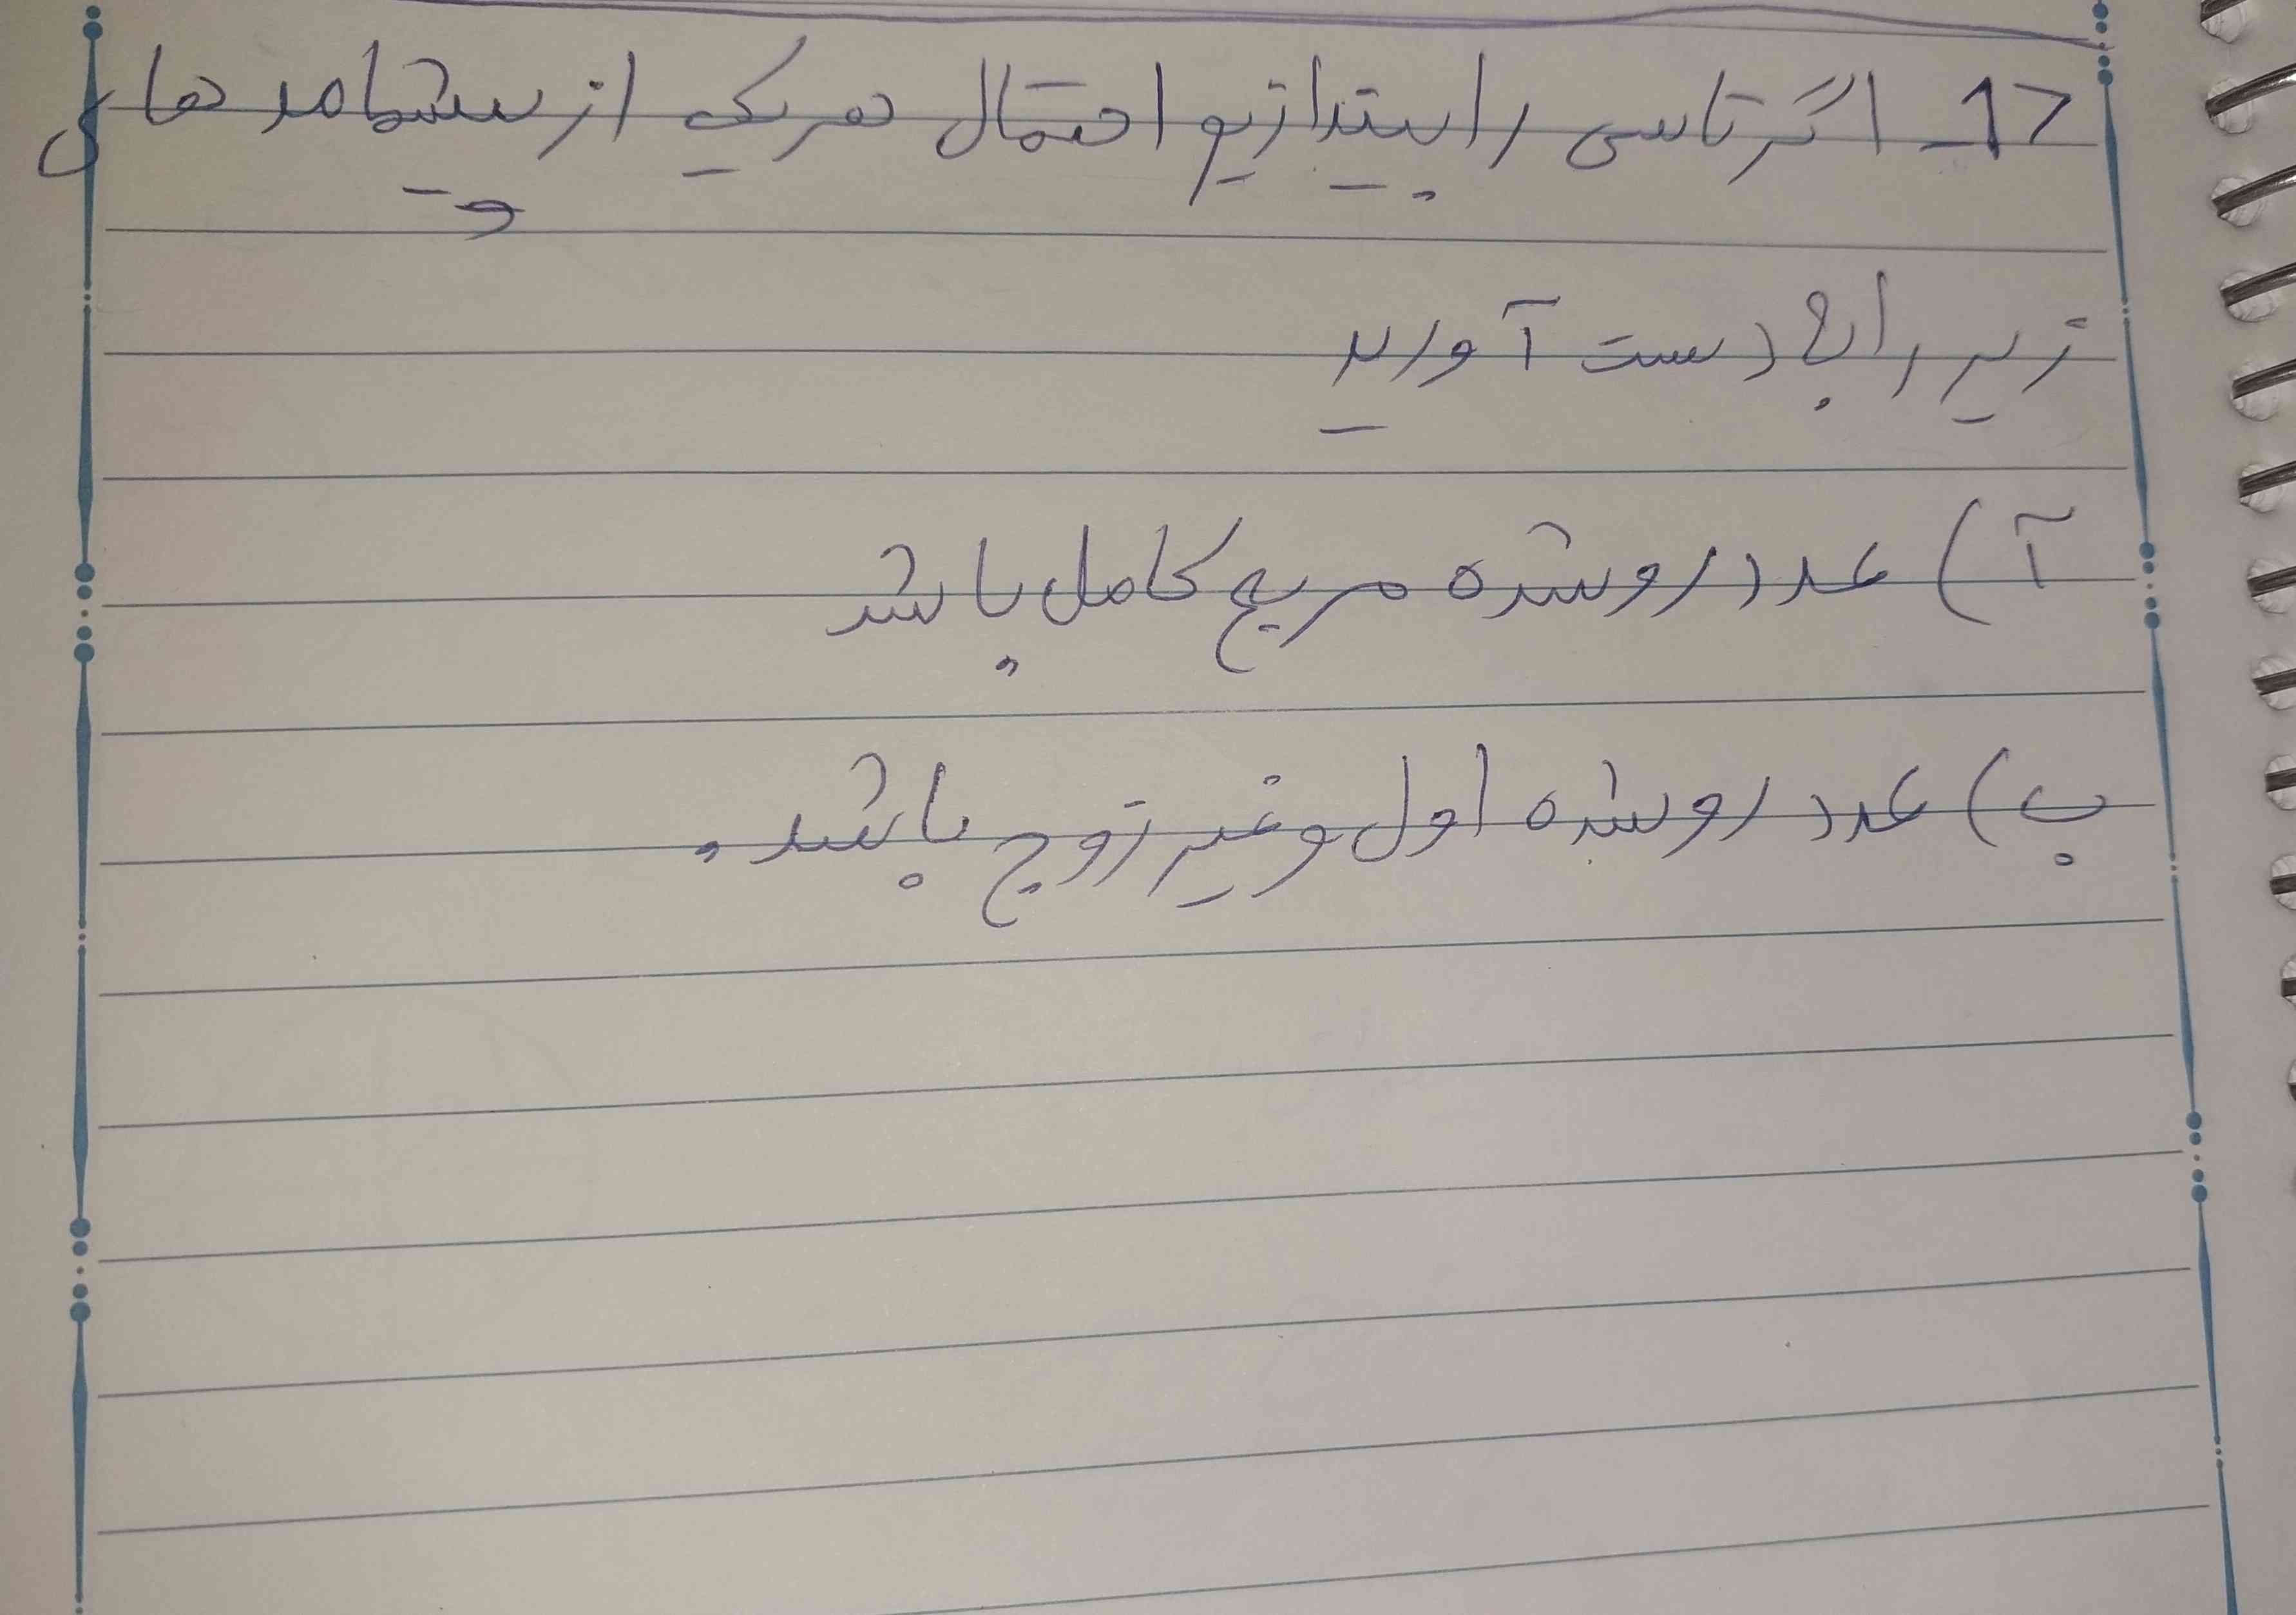 17_ اگر تاسی را بیندازیم احتمال هر یک از پیشامدهای
زیر را به دست آورید
آ) عدد رو شده مربع کامل باشد
ب) عدد رو شده اول و غیر زوج باشد.